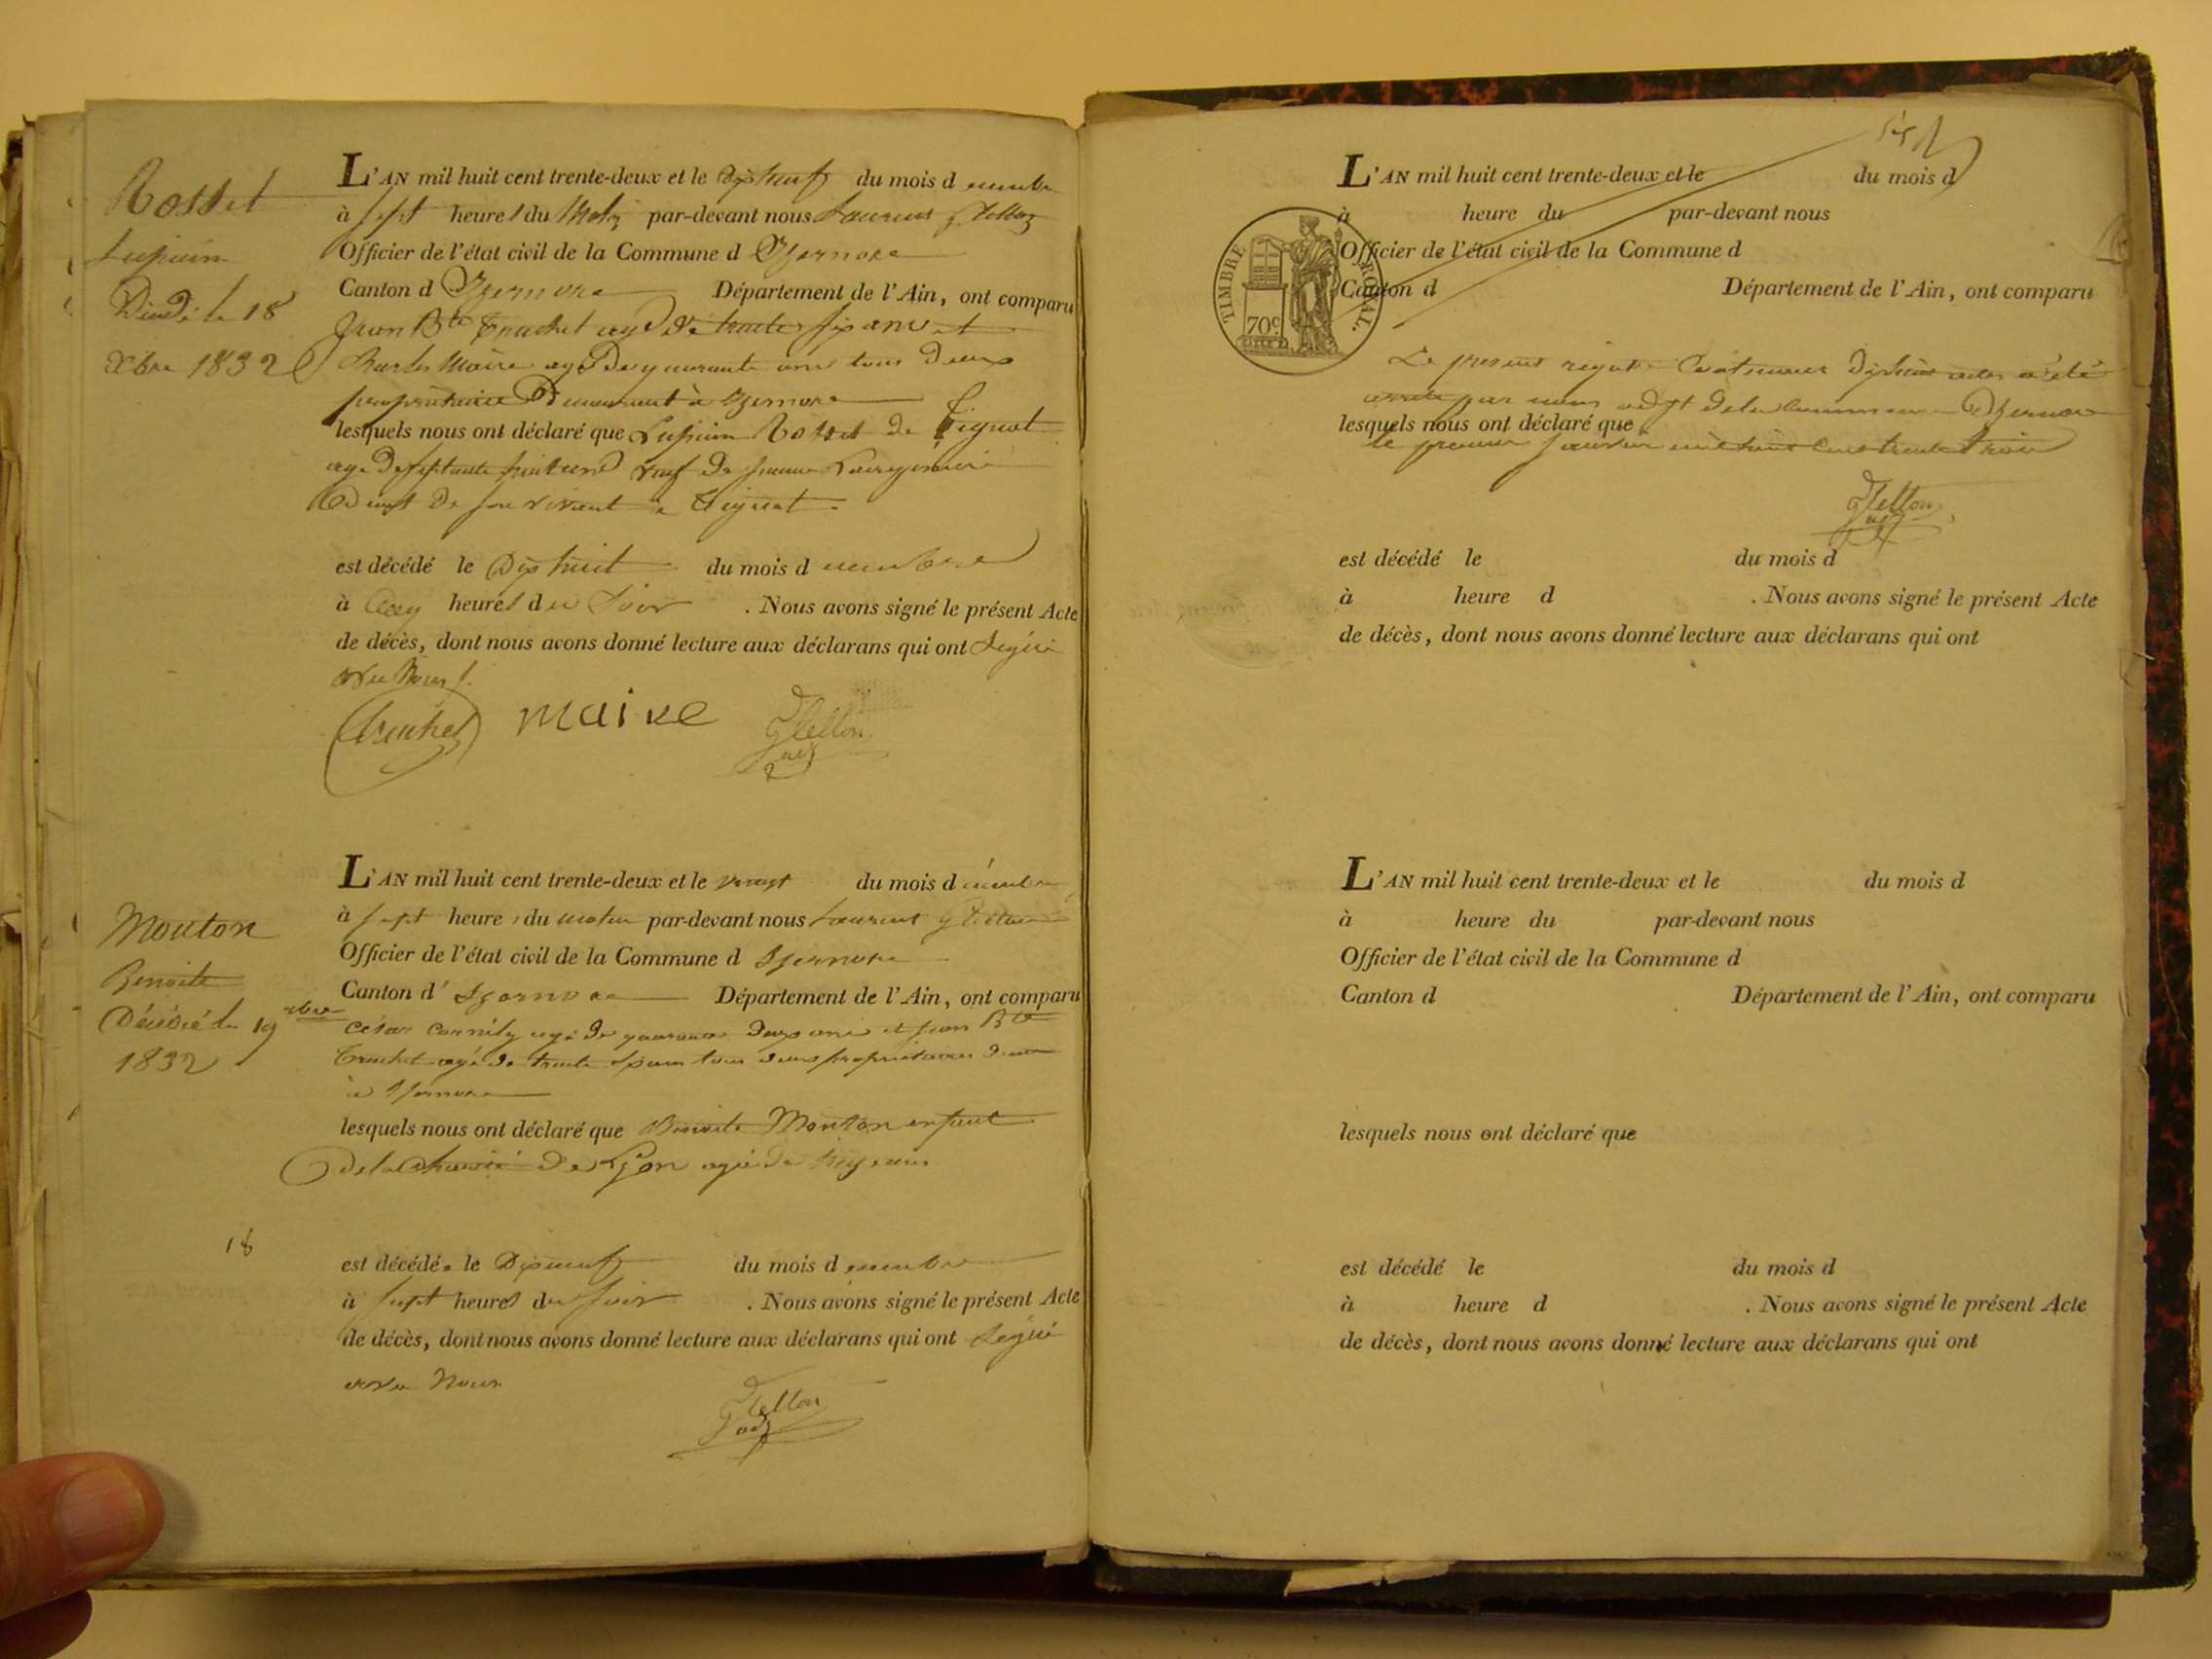 Rosset
Lupicin
Décédé le 18
Xbre 1832
L'AN mil huit cent trente-deux et le Dix neuf du mois d
à sept heures du Matin par-devant nous Laurent
Officier de l'état civil de la Commune d Izernore
Canton d Izernore Département de l'Ain, ont comparu
Jean Bte Truchet agé de trente six ans et
Charles Maire agé de quarante ans tous deux
propriétaires Demeurant à Izernore
lesquels nous ont déclaré que Lupicin Rosset de Tignat
agé de septante huit ans veuf de
de son vivant a Tignat
est décédé le Dix huit du mois d
à heures du Soir . Nous avons signé le présent Acte
de décès, dont nous avons donné lecture aux déclarans qui ont Signé
avec Nous
Truchet maire
Mouton
Benoite
Décédé le 19 xbre
1832
18
L'AN mil huit cent trente-deux et le vingt du mois d
à sept heures du matin par-devant nous Laurent
Officier de l'état civil de la Commune d Izernore
Canton d' Izernore Département de l'Ain, ont comparu
César agé de quarante deux ans et Jean Bte
Truchet agé de trente six ans tous deux propriétaires
à Izernore
lesquels nous ont déclaré que Benoite Mouton enfant
de la charité de Lyon agé de
est décédé le Dix neuf du mois d
à sept heures du soir . Nous avons signé le présent Acte
de décès, dont nous avons donné lecture aux déclarans qui ont Signé
avec Nous
L'AN mil huit cent trente-deux et le du mois d
à heure du par-devant nous
Officier de l'état civil de la Commune d
Canton d Département de l'Ain, ont comparu
TIMBRE ROYAL.
70c
Le present registre Contenant actes a été
par nous adjt de la Commune D'Izernore
lesquels nous ont déclaré que
le premier janvier mil huit cent trente trois
est décédé le du mois d
à heure d . Nous avons signé le présent Acte
de décès, dont nous avons donné lecture aux déclarans qui ont
L'AN mil huit cent trente-deux et le du mois d
à heure du par-devant nous
Officier de l'état civil de la Commune d
Canton d Département de l'Ain, ont comparu
lesquels nous ont déclaré que
est décédé le du mois d
à heure d . Nous avons signé le présent Acte
de décès, dont nous avons donné lecture aux déclarans qui ont